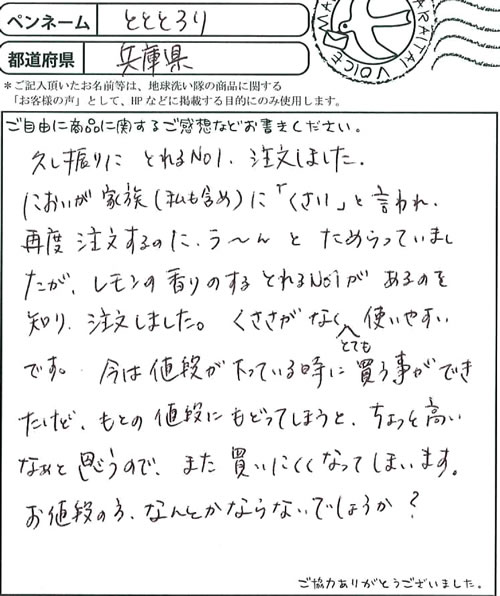 ペンネーム とととろり
都道府県 兵庫県
＊ご記入頂いたお名前等は、地球洗い隊の商品に関する
「お客様の声」として、HPなどに掲載する目的にのみ使用します。
ARAITAI VOICE MA
ご自由に商品に関するご感想などお書きください。
久し振りに とれるNo1. 注文しました.
においが 家族(私も含め)に「くさい」と言われ.
再度 注文するのに、う〜ん と ためらっていまし
たが、レモンの香りのする とれるNo1が あるのを
知り、注文しました。 くささがなく とても 使いやすい
です。 今は値段が下っている時に 買う事ができ
たけど、もとの値段にもどってしまうと、ちょっと高い
なぁと思うので、また買いにくくなってしまいます。
お値段の方、なんとかならないでしょうか？
ご協力ありがとうございました。